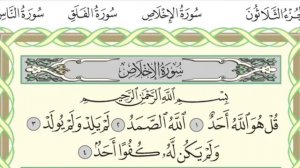 سُورَةُ النَّاسِ سُورَةُ الْفَلَقِ سُورَةُ الْإِخْلَاصِ الجُزْءُ الثَّلَاثُونَ
سُورَةُ الإِخْلَاصِ
بِسْمِ اللَّهِ الرَّحْمَٰنِ الرَّحِيمِ
قُلْ هُوَ اللَّهُ أَحَدٌ ١ اللَّهُ الصَّمَدُ ٢ لَمْ يَلِدْ وَلَمْ يُولَدْ ٣
وَلَمْ يَكُن لَّهُ كُفُوًا أَحَدٌ ٤